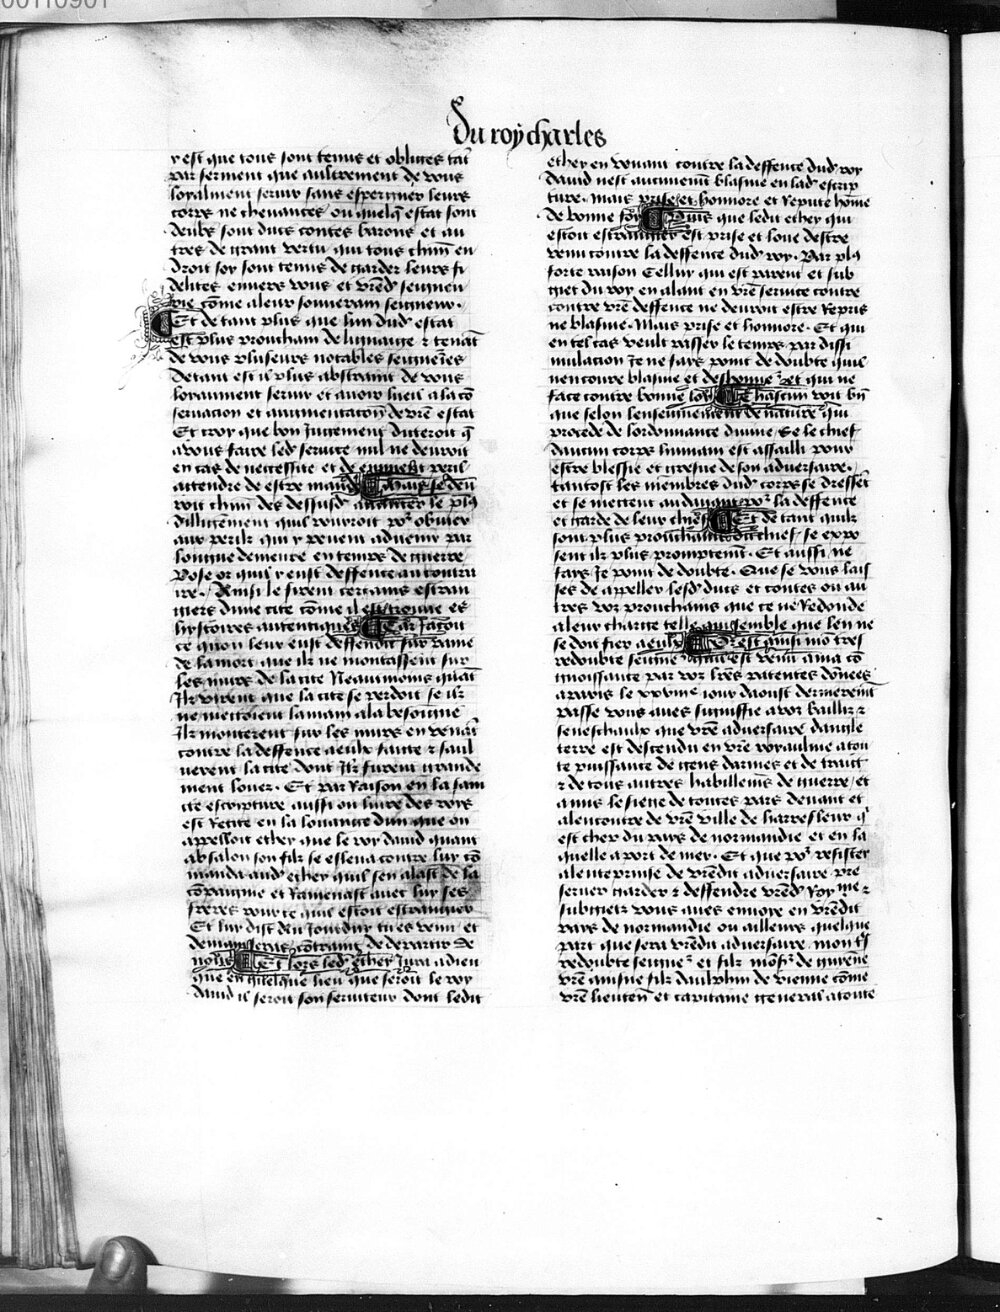 00110901
Du roy charles
y est que tous sont tenus et obliges tāt
par serment que aultrement de vous
loyalment seruir sans espergner leurs
corps ne cheuances ou quelq̄ estat sont
deulx sont ducs contes barons et au
tres de grant vertu qui tous chūn en
droit soy sont tenus de garder leurs fi
delites enuers vous et vr̄ed seigneu
rie cōme a leur souuerain seigneur.
Et de tant plus que lun dud estat
est plus prouchain de lignaige ⁊ tenāt
de vous pluseurs notables seignēies
de tant est il plus abstraint de vous
loyaument seruir et auoir lueil a la cō
seruacion et aumentacōn de vr̄e estat
Et croy que bon Jugement diteroit q̄
a vous faire led seruice nul ne deuroit
en cas de necessite et de eminent peril
attendre de estre mande Mais se deu
roit chūn des dessusd auancier le plꝰ
dilligēment quil pourroit poᷣ obuier
aux perilz qui y peuent aduenir par
longue demeuree en temps de guerre
Pose or quil y eust deffence au contrai
re. Ainsi le firent certains estran
giers dune cite cōme il est trouue es
hystoires autentiques Car Jacoit
ce quon leur eust deffendu sur paine
de la mort que ilz ne montassent sur
les murs de la cite Neaumoins quāt
Ilz virent que la cite se perdoit se ilz
ne mettoient la main a la besoigne
Ilz monterent sur les murs en venāt
contre la deffence a eulx faitte ⁊ saul
uerent la cite dont Ilz furent grande
ment louez. Et par Raison en la sain
cte escripture aussi ou liure des roys
est Recite en la louange dun que on
appelloit ethey que le roy dauid quant
absalon son filz se esleua contre luy cō
manda aud ethey quil sen alast de sa
cōpaignie et Ramenast auec luy ses
freres pource quil estoit estrangier
Et luy dist Au Jourduy tu es venu et
demain seras cōtraint de departir de
nous Et lors led ethey Jura a dieu
que en quelque lieu que seroit le roy
dauid il seroit son seruiteur dont ledit
ethey en venant contre la deffence dud roy
dauid nest aucunemēt blasme en lad escrip
ture. Mais prise et honnore et Repute hōme
de bonne foy Puis que ledit ethey qui
estoit estrangier est prise et loue destre
venu contre la deffence dud roy. Par plꝰ
forte raison Celluy qui est parent et sub
giet du roy en alant en vr̄e seruice contre
contre vr̄e deffence ne deuroit estre Repris
ne blasme. Mais prise et honnore. Et qui
en tel cas veult passer le temps par dissi
mulacion Je ne fays point de doubte quil
nencoure blasme et deshonneᷣ et qui ne
face contre bonne loy Chascun voit bn̄
que selon lenseignement de nature qui
procede de lordonnance diuine Se le chief
daucun corps humain est assailli pour
estre blessie et greue de son aduersaire.
tantost les membres dud corps se dressēt
et se mettent au deuant poᷣ la deffence
et garde de leur chief Et de tant quilz
sont plus prouchains dud chief se expo
sent ilz plus promptemt̄. Et aussi ne
fays Je point de doubte. Que se vous lais
ses de appeller lesd ducs et contes ou au
tres voz prouchains que ce ne Redonde
a leur charge telle quil semble que len ne
se doit fier a eulx Or est ainsi mō tres
redoubte seigneᷣ quil est venu a ma cō
gnoissance par voz lr̄es patentes dōnees
a paris le xxviiiᵉ iour daoust derrenemēt
passe vous aues signiffie a voz bailliz ⁊
seneschaulx que vr̄e aduersaire dangle
terre est descendu en vr̄e royaulme a tou
te puissance de gens darmes et de traict
⁊ de tous autres habillemēs de guerre et
a mis le siege de toutes pars deuant et
alencontre de vr̄e ville de harrefleur q̄
est chef du pays de normandie et en la
quelle a port de mer. Et que poᷣ resister
a lentreprise de vr̄edit aduersaire pre
seruer garder ⁊ deffendre vr̄ed Royᵐᵉ ⁊
subgietz vous aues enuoye en vr̄edit
pays de normandie ou ailleurs quelque
part que sera vr̄edit aduersaire. mon tˢ
redoubte seigneᷣ et filz monsᷣ de guyene
vr̄e ainsne filz daulphin de vienne cōme
vr̄e lieuten̄ et capitaine general a toute